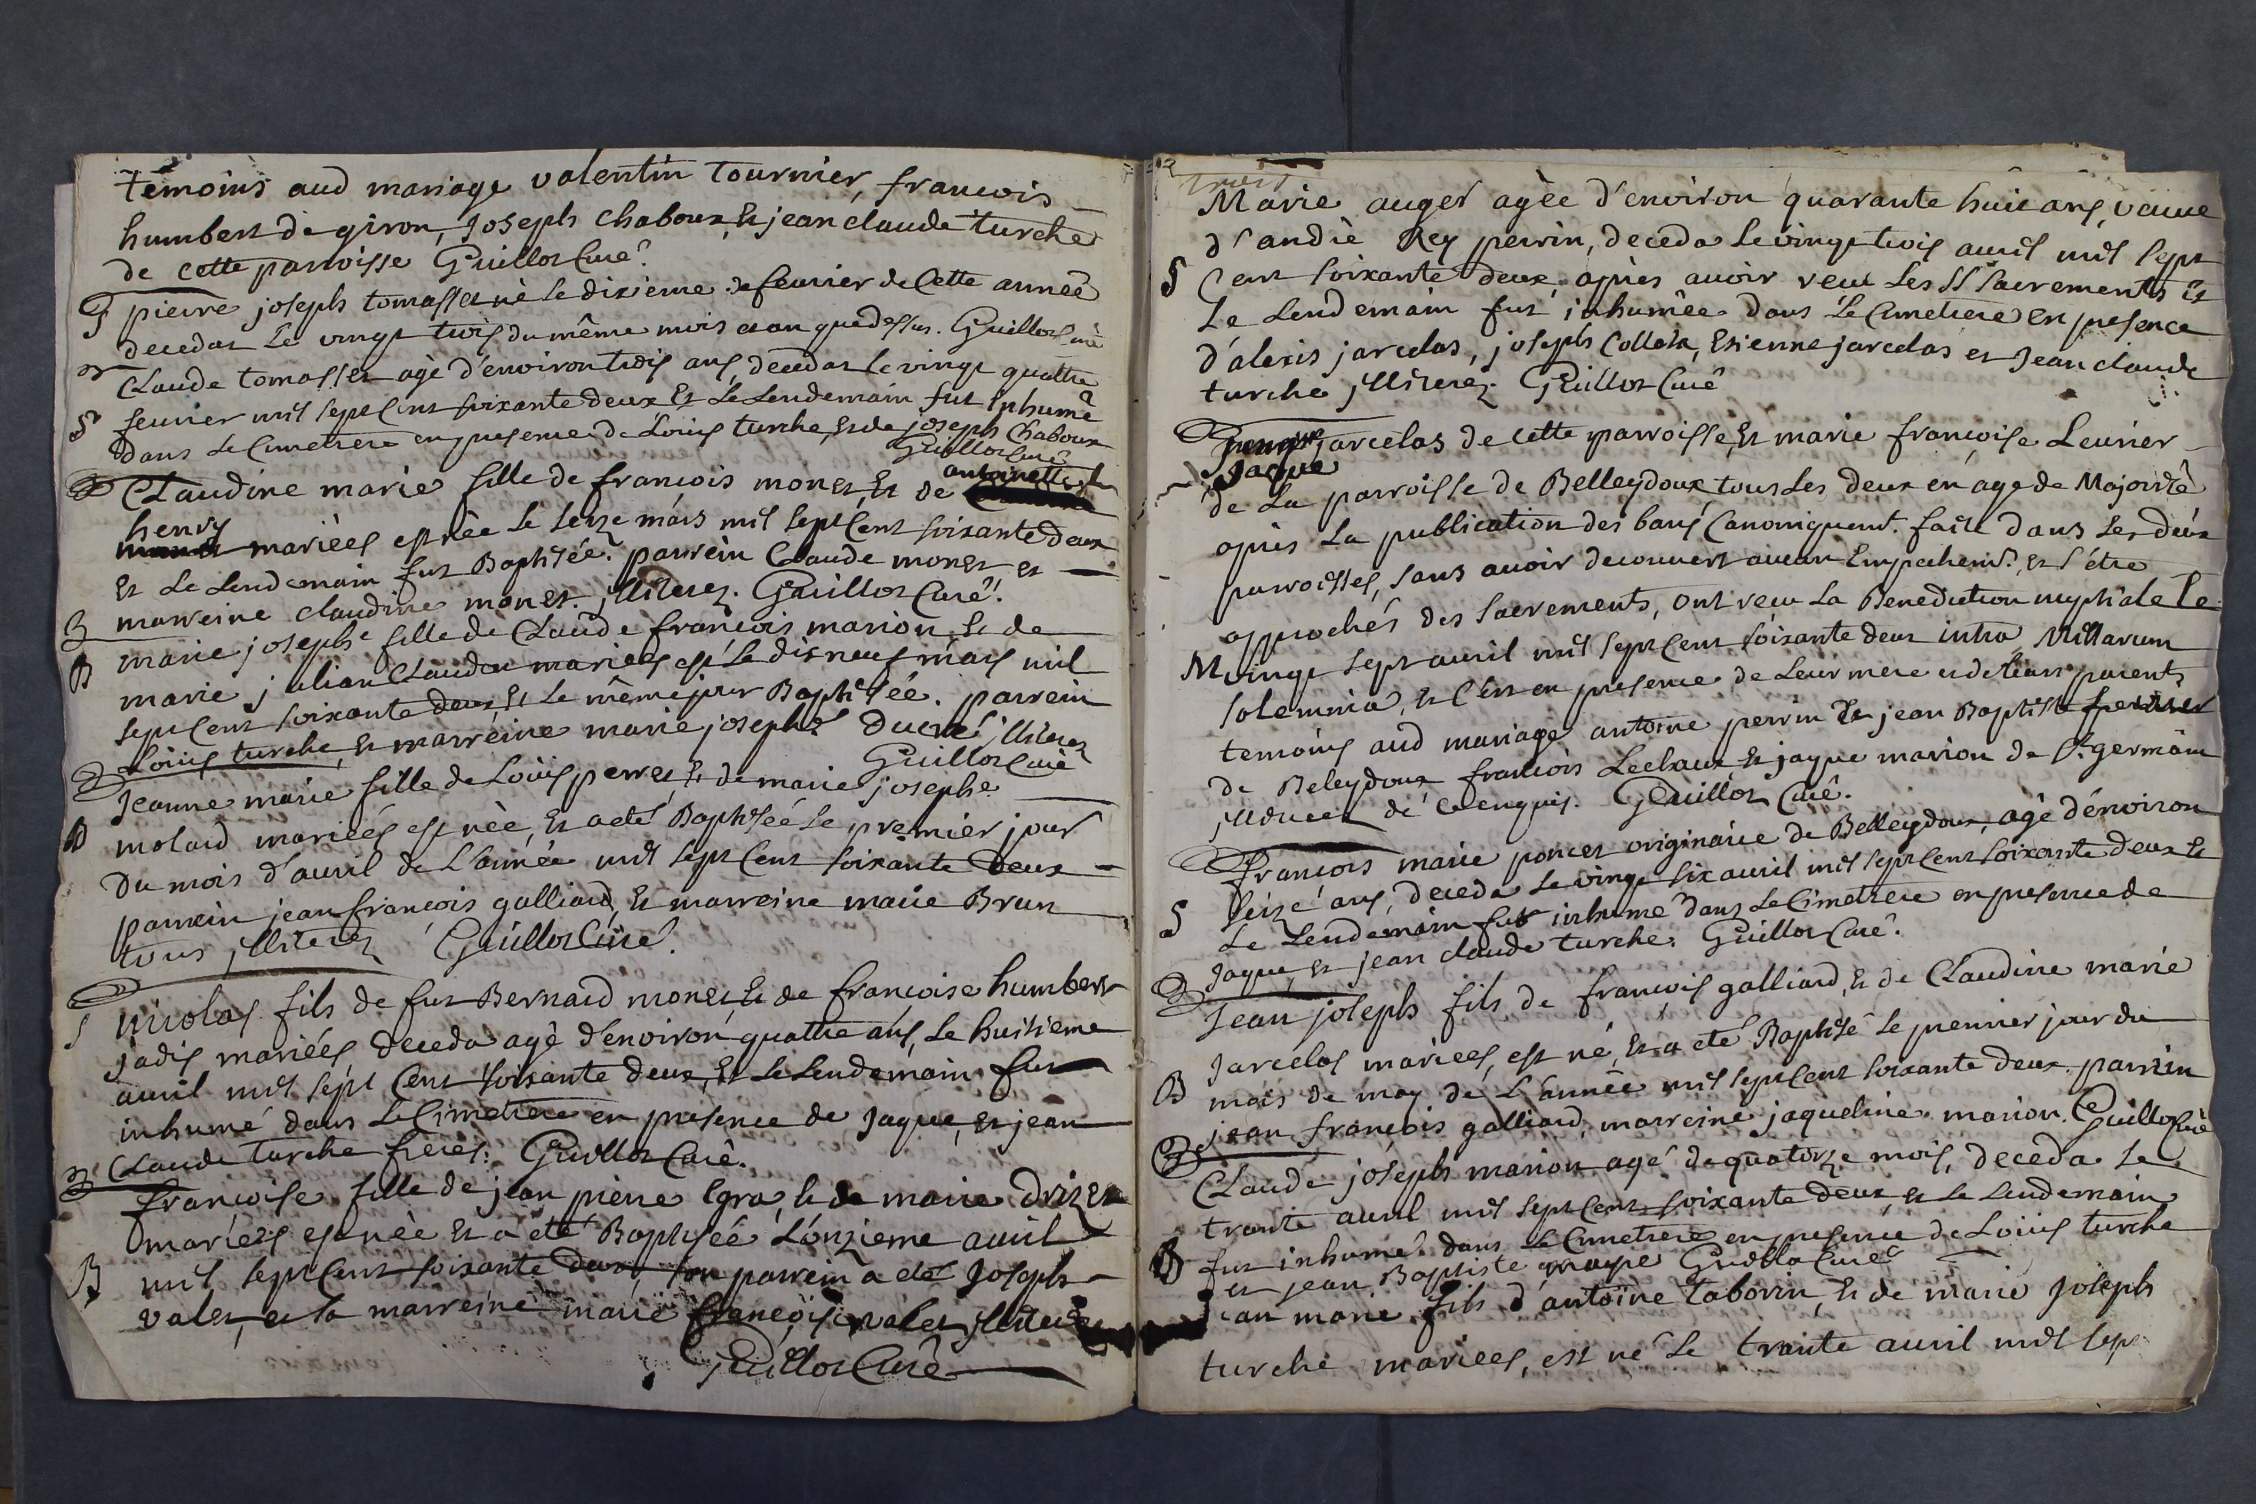 témoins aud mariage valentin tournier, francois
humbert de giron, Joseph chaboux, et jean claude turche
de cette parroisse Guillot Curé.
S pierre joseph tomasset né le dixieme de feuvrier de Cette année
decedat Le vingt trois du même mois et an que dessus. Guillot curé
Claude tomasset agé d'environ trois ans, decedat le vingt quattre
S feuvrier mil sept Cent soixante deux Et Le Lendemain fut inhumé
dans Le Cimetiere en presence de Loüis turche, et de joseph Chaboux
Guillot Curé
Claudine marie fille de francois monet, Et de antoinette
henry mariées est née le seize mars mil sept Cent soixante deux
Et Le Lendemain fut Baptisée. parrein Claude monet et
marreine claudine monet. jlliterez. Guillot Curé.
B marie josephe fille de Claude francois marion, et de
marie julian Claudon mariées est Le dix neuf mars mil
sept Cent soixante deux, Et Le même jour Baptisée. parrein
Loüis turche, et marreine marie josephe Ducret jlliterez
Guillot Curé
Jeanne marie fille de Loüis perret, Et de marie josephe
B molard mariées est née, Et a eté Baptisée Le premier jour
Du mois d'auril de L'année mil sept Cent soixante Deux
parrein jean francois galliard, Et marreine marie Brun
tous jlliterez Guillot Curé.
S nicolas fils de fut Bernard monet, Et de francoise humbert
jadis mariées, deceda agé d'environ quattre ans, Le huitieme
auril mil sept Cent soixante deux, Et Le Lendemain fut
inhumé dans Le Cimetiere en presence de Jaque, et jean
Claude turche freres. Guillot Curé.
francoise fille de jean pierre Egra, Et de marie Drizet
mariées est née Et a eté Baptisée L'onzieme auril
B mil sept Cent soixante deux, son parrein a eté Joseph
valet, et sa marreine marie francoise valet jlliterez
Guillot Curé
Marie auger agée d'environ quarante huit ans, veuve
d'andré Rey perrin, deceda Le vingt trois auril mil sept
S Cent soixante deux, apres auoir receu Les SS sacrements Et
Le Lendemain fut inhumée dans Le Cimetiere en presence
d'alexis jarcelas, joseph Collet, Etienne jarcelas et Jean claude
turche jlliterez. Guillot Curé
Jaque jarcelas de cette parroisse, Et marie françoise Leuvrier
de La parroisse de Belleydoux tous Les deux en age de Majorité
apres La publication des bans Canoniquemt. faite dans Les deux
parroisses, sans auoir decouvert aucun Empechemt. et s'étre
approchés des sacrements, ont receu La Benediction nuptiale Le
M vingt sept auril mil sept Cent soixante deux intra Missarum
solemnia, Et C'est en presence de Leur mere et de Leurs parents
temoins aud mariage antoine perrin Et jean Baptiste
de Beleydoux francois Lechaux, Et jaque marion de St. germain
jlliterez de Ce enquis. Guillot Curé.
François marie poncet originaire de Belleydoux, agé d'environ
S seize ans, deceda Le vingt six auril mil sept Cent soixante deux Et
Le Lendemain fut inhumé dans Le Cimetiere en presence de
Jaque, et jean claude turche. Guillot Curé.
Jean joseph fils de françois galliard, Et de Claudine marie
Jarcelas mariées, est né, Et a eté Baptisé Le premier jour du
B mois de may de L'année mil sept Cent soixante deux. parrein
jean françois galliard, marreine jaqueline marion. Guillot Curé
Claude joseph marion agé de quatorze mois, deceda Le
trante auril mil sept Cent soixante deux, et Le Lendemain
fut inhumé dans Le Cimetiere en presence de Loüis turche
et jean Baptiste Guillot Curé
B Jean marie fils d'antoine Taborin, Et de marie Joseph
turche mariees, est né Le trante auril mil sept